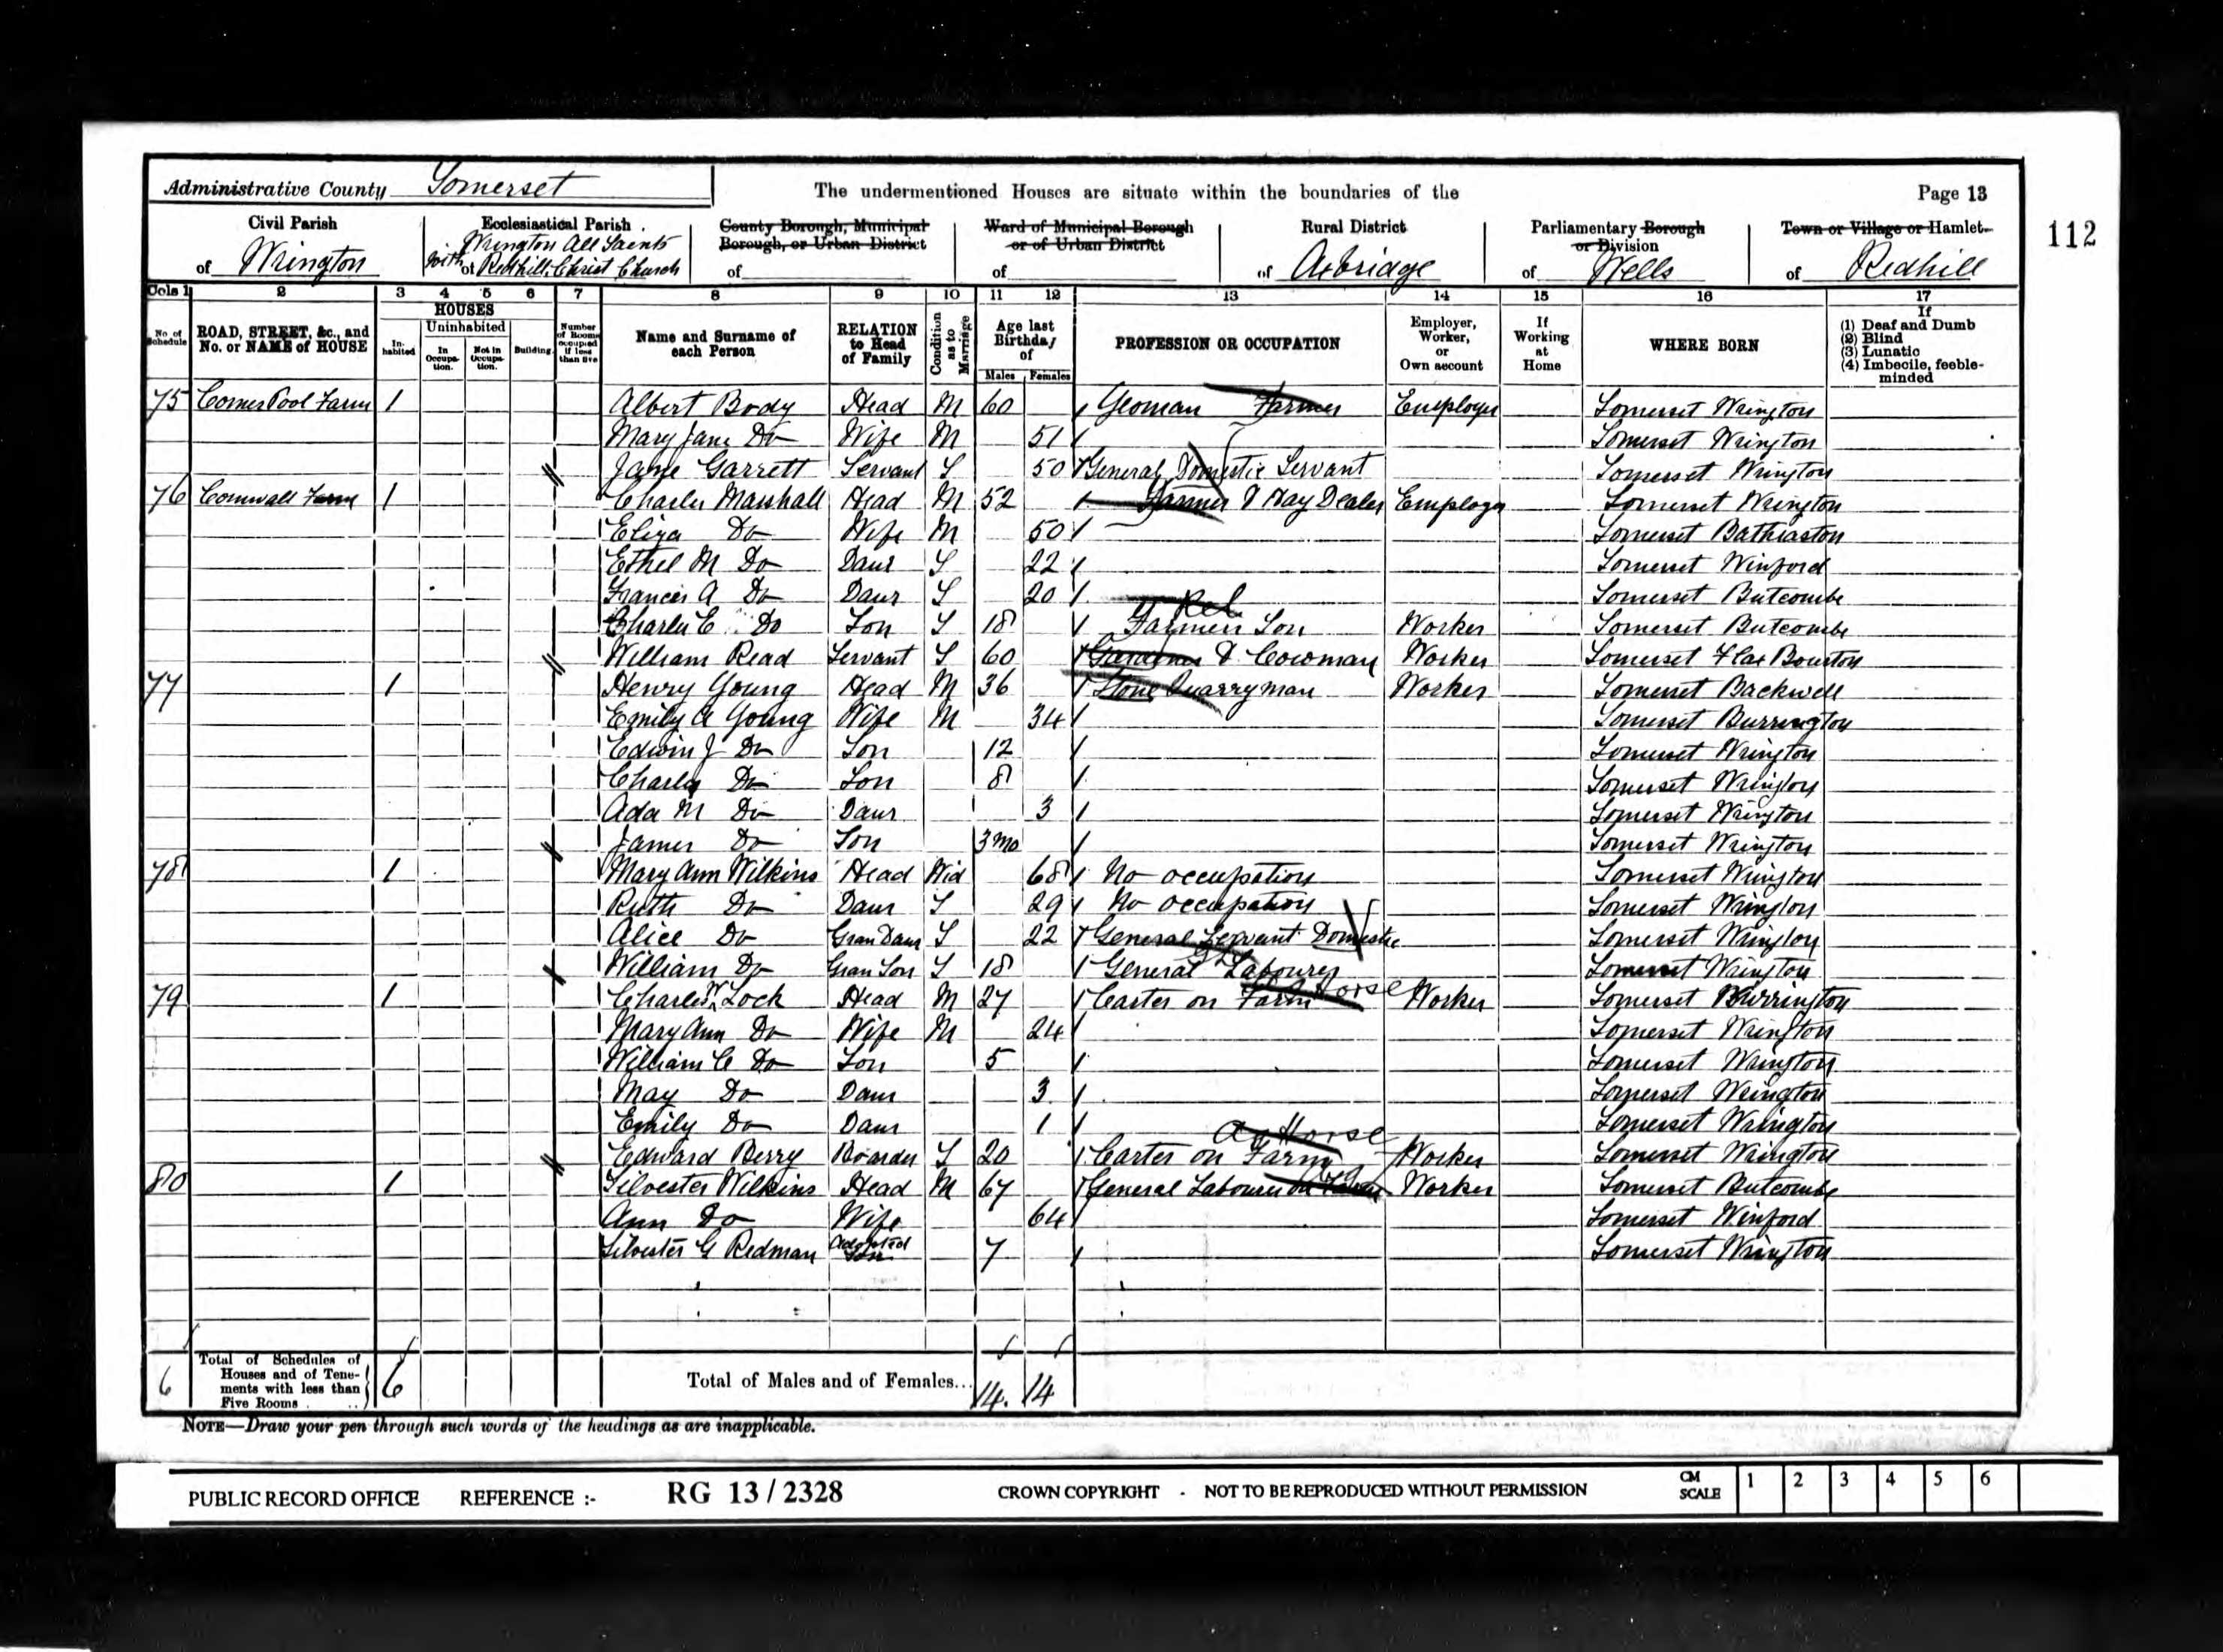 Administrative County Somerset The undermentioned Houses are situate within the boundaries of the Page 13
112
Civil Parish of Wrington
Ecclesiastical Parish of Wrington All Saints with Redhill Christ Church
County Borough, Municipal Borough, or Urban District of
Ward of Municipal Borough or of Urban District of
Rural District of Axbridge
Parliamentary Borough or Division of Wells
Town or Village or Hamlet of Redhill
Cols 1 2 3 4 5 6 7 8 9 10 11 12 13 14 15 16 17
No. of Schedule
ROAD, STREET, &c., and No. or NAME of HOUSE
HOUSES
Inhabited
Uninhabited
In Occupation.
Not in Occupation.
Building
Number of Rooms occupied if less than five
Name and Surname of each Person
RELATION to Head of Family
Condition as to Marriage
Age last Birthday of
Males Females
PROFESSION OR OCCUPATION
Employer, Worker, or Own account
If Working at Home
WHERE BORN
If
(1) Deaf and Dumb
(2) Blind
(3) Lunatic
(4) Imbecile, feeble-minded
75 Comer Pool Farm 1 Albert Body Head M 60 Yeoman Farmer Employer Somerset Wrington
Mary Jane Do Wife M 51 Somerset Wrington
Jane Garrett Servant S 50 General Domestic Servant Somerset Wrington
76 Cornwall Farm 1 Charles Marshall Head M 52 Farmer & Hay Dealer Employer Somerset Wrington
Eliza Do Wife M 50 Somerset Batheaston
Ethel M Do Daur S 22 Somerset Winford
Frances A Do Daur S 20 Somerset Butcombe
Rel
Charles E Do Son S 18 Farmers Son Worker Somerset Butcombe
William Read Servant S 60 Gardener & Cowman Worker Somerset Flax Bourton
77 1 Henry Young Head M 36 Stone Quarryman Worker Somerset Backwell
Emily A Young Wife M 34 Somerset Burrington
Edwin J Do Son 12 Somerset Wrington
Charles Do Son 8 Somerset Wrington
Ada M Do Daur 3 Somerset Wrington
James Do Son 3 mo Somerset Wrington
78 1 Mary Ann Wilkins Head Wid 68 No occupation Somerset Wrington
Ruth Do Daur S 29 No occupation Somerset Wrington
Alice Do Gran Daur S 22 General Servant Domestic Somerset Wrington
William Do Gran Son S 18 General Labourer Somerset Wrington
79 1 Charles W Lock Head M 27 Carter on Farm Horse Worker Somerset Burrington
Mary Ann Do Wife M 24 Somerset Wrington
William C Do Son 5 Somerset Wrington
May Do Daur 3 Somerset Wrington
Emily Do Daur 1 Somerset Wrington
Ag Horse
Edward Berry Boarder S 20 Carter on Farm Worker Somerset Wrington
80 1 Silvester Wilkins Head M 67 General Labourer on Farm Worker Somerset Butcombe
Ann Do Wife 64 Somerset Winford
Silvester G Redman Adopted Son 7 Somerset Wrington
6 Total of Schedules of Houses and of Tenements with less than Five Rooms 6 Total of Males and of Females... 14. 14
NOTE—Draw your pen through such words of the headings as are inapplicable.
PUBLIC RECORD OFFICE REFERENCE :- RG 13 / 2328 CROWN COPYRIGHT - NOT TO BE REPRODUCED WITHOUT PERMISSION CM SCALE 1 2 3 4 5 6